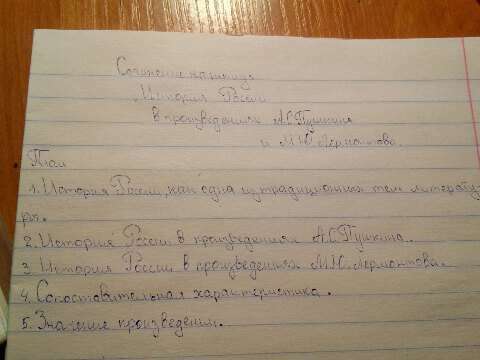 Сочинение на тему:
„История России
в произведениях А.С.Пушкина
и М.Ю.Лермонтова.
План
1. История России, как одна из традиционных тем литерату-
ры.
2. История России в произведениях А.С.Пушкина.
3. История России в произведениях М.Ю.Лермонтова.
4. Сопоставительная характеристика.
5. Значение произведений.